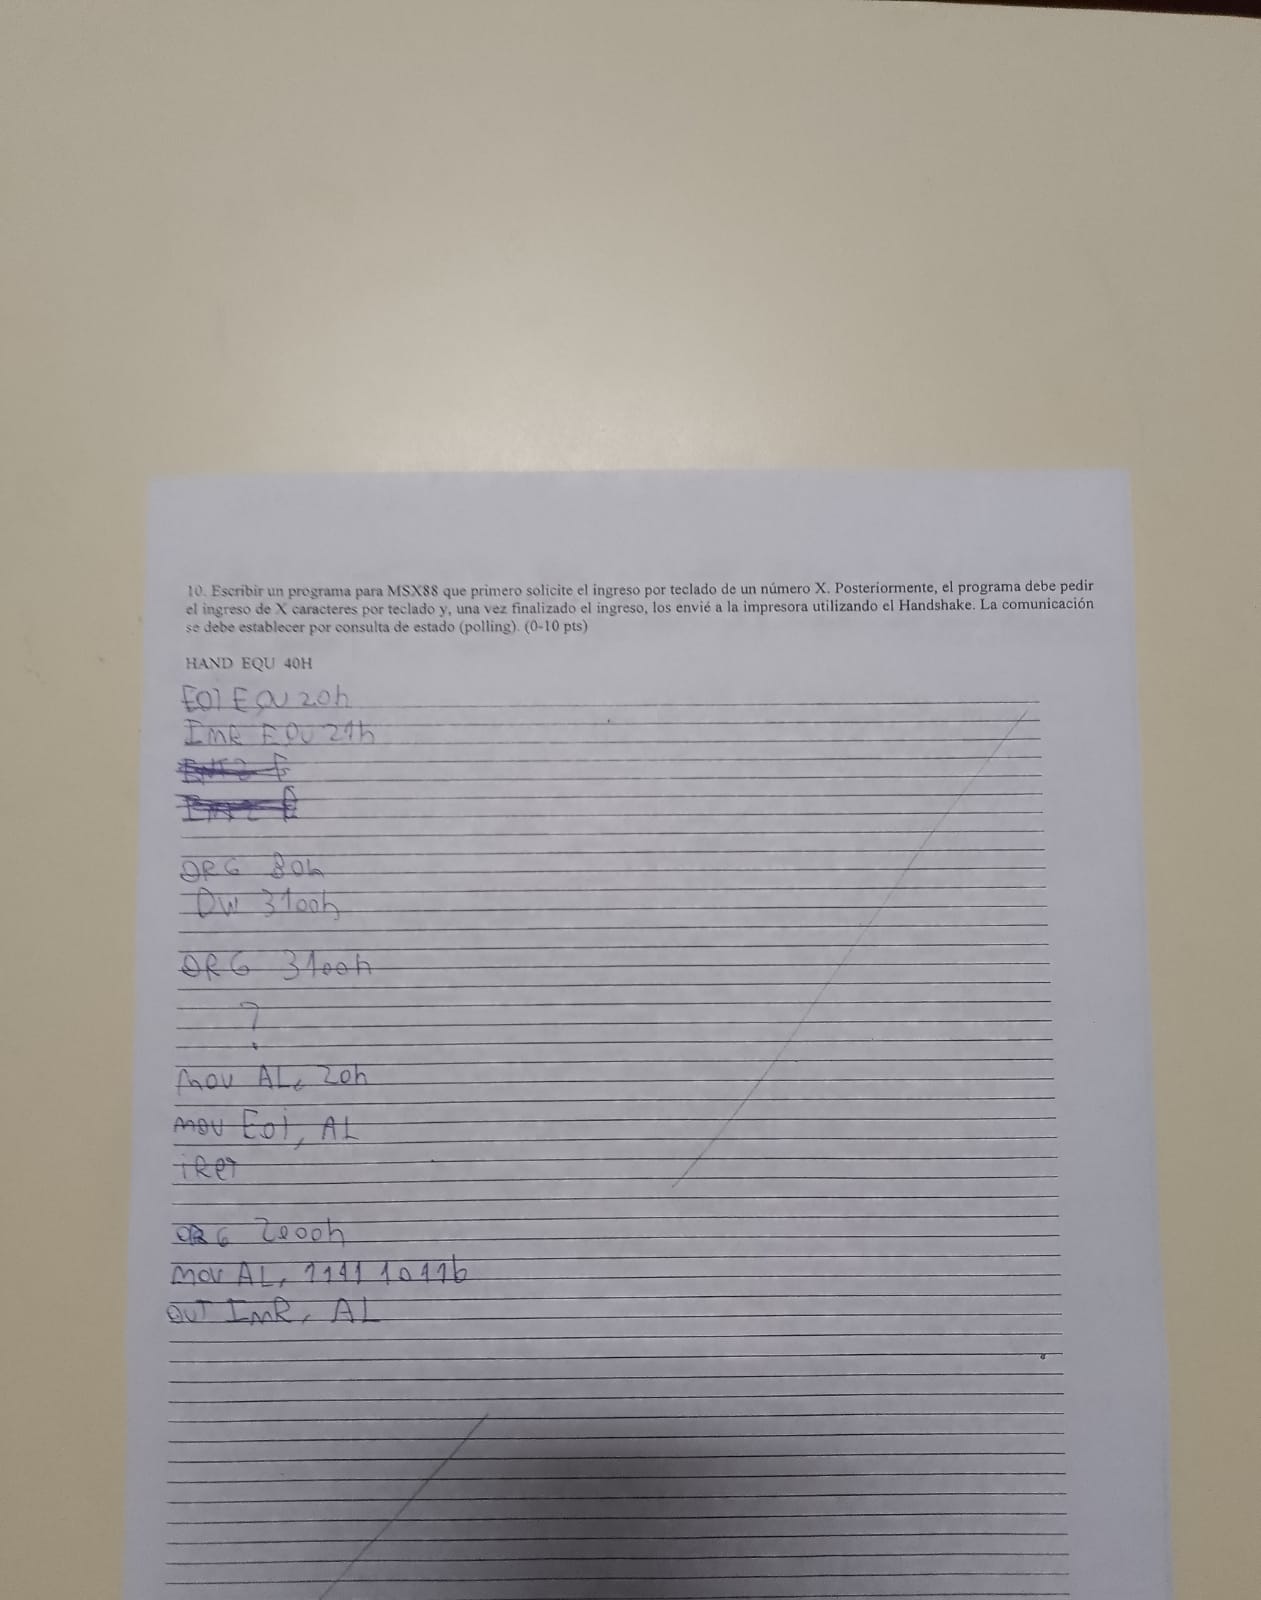 10. Escribir un programa para MSX88 que primero solicite el ingreso por teclado de un número X. Posteriormente, el programa debe pedir
el ingreso de X caracteres por teclado y, una vez finalizado el ingreso, los envié a la impresora utilizando el Handshake. La comunicación
se debe establecer por consulta de estado (polling). (0-10 pts)
HAND EQU 40H
EOI EQU 20h
IMR EQU 21h
ORG 80h
DW 3100h
ORG 3100h
?
mov AL, 20h
mov EOi, AL
iRet
ORG 2000h
mov AL, 1111 1011b
OUT ImR, AL